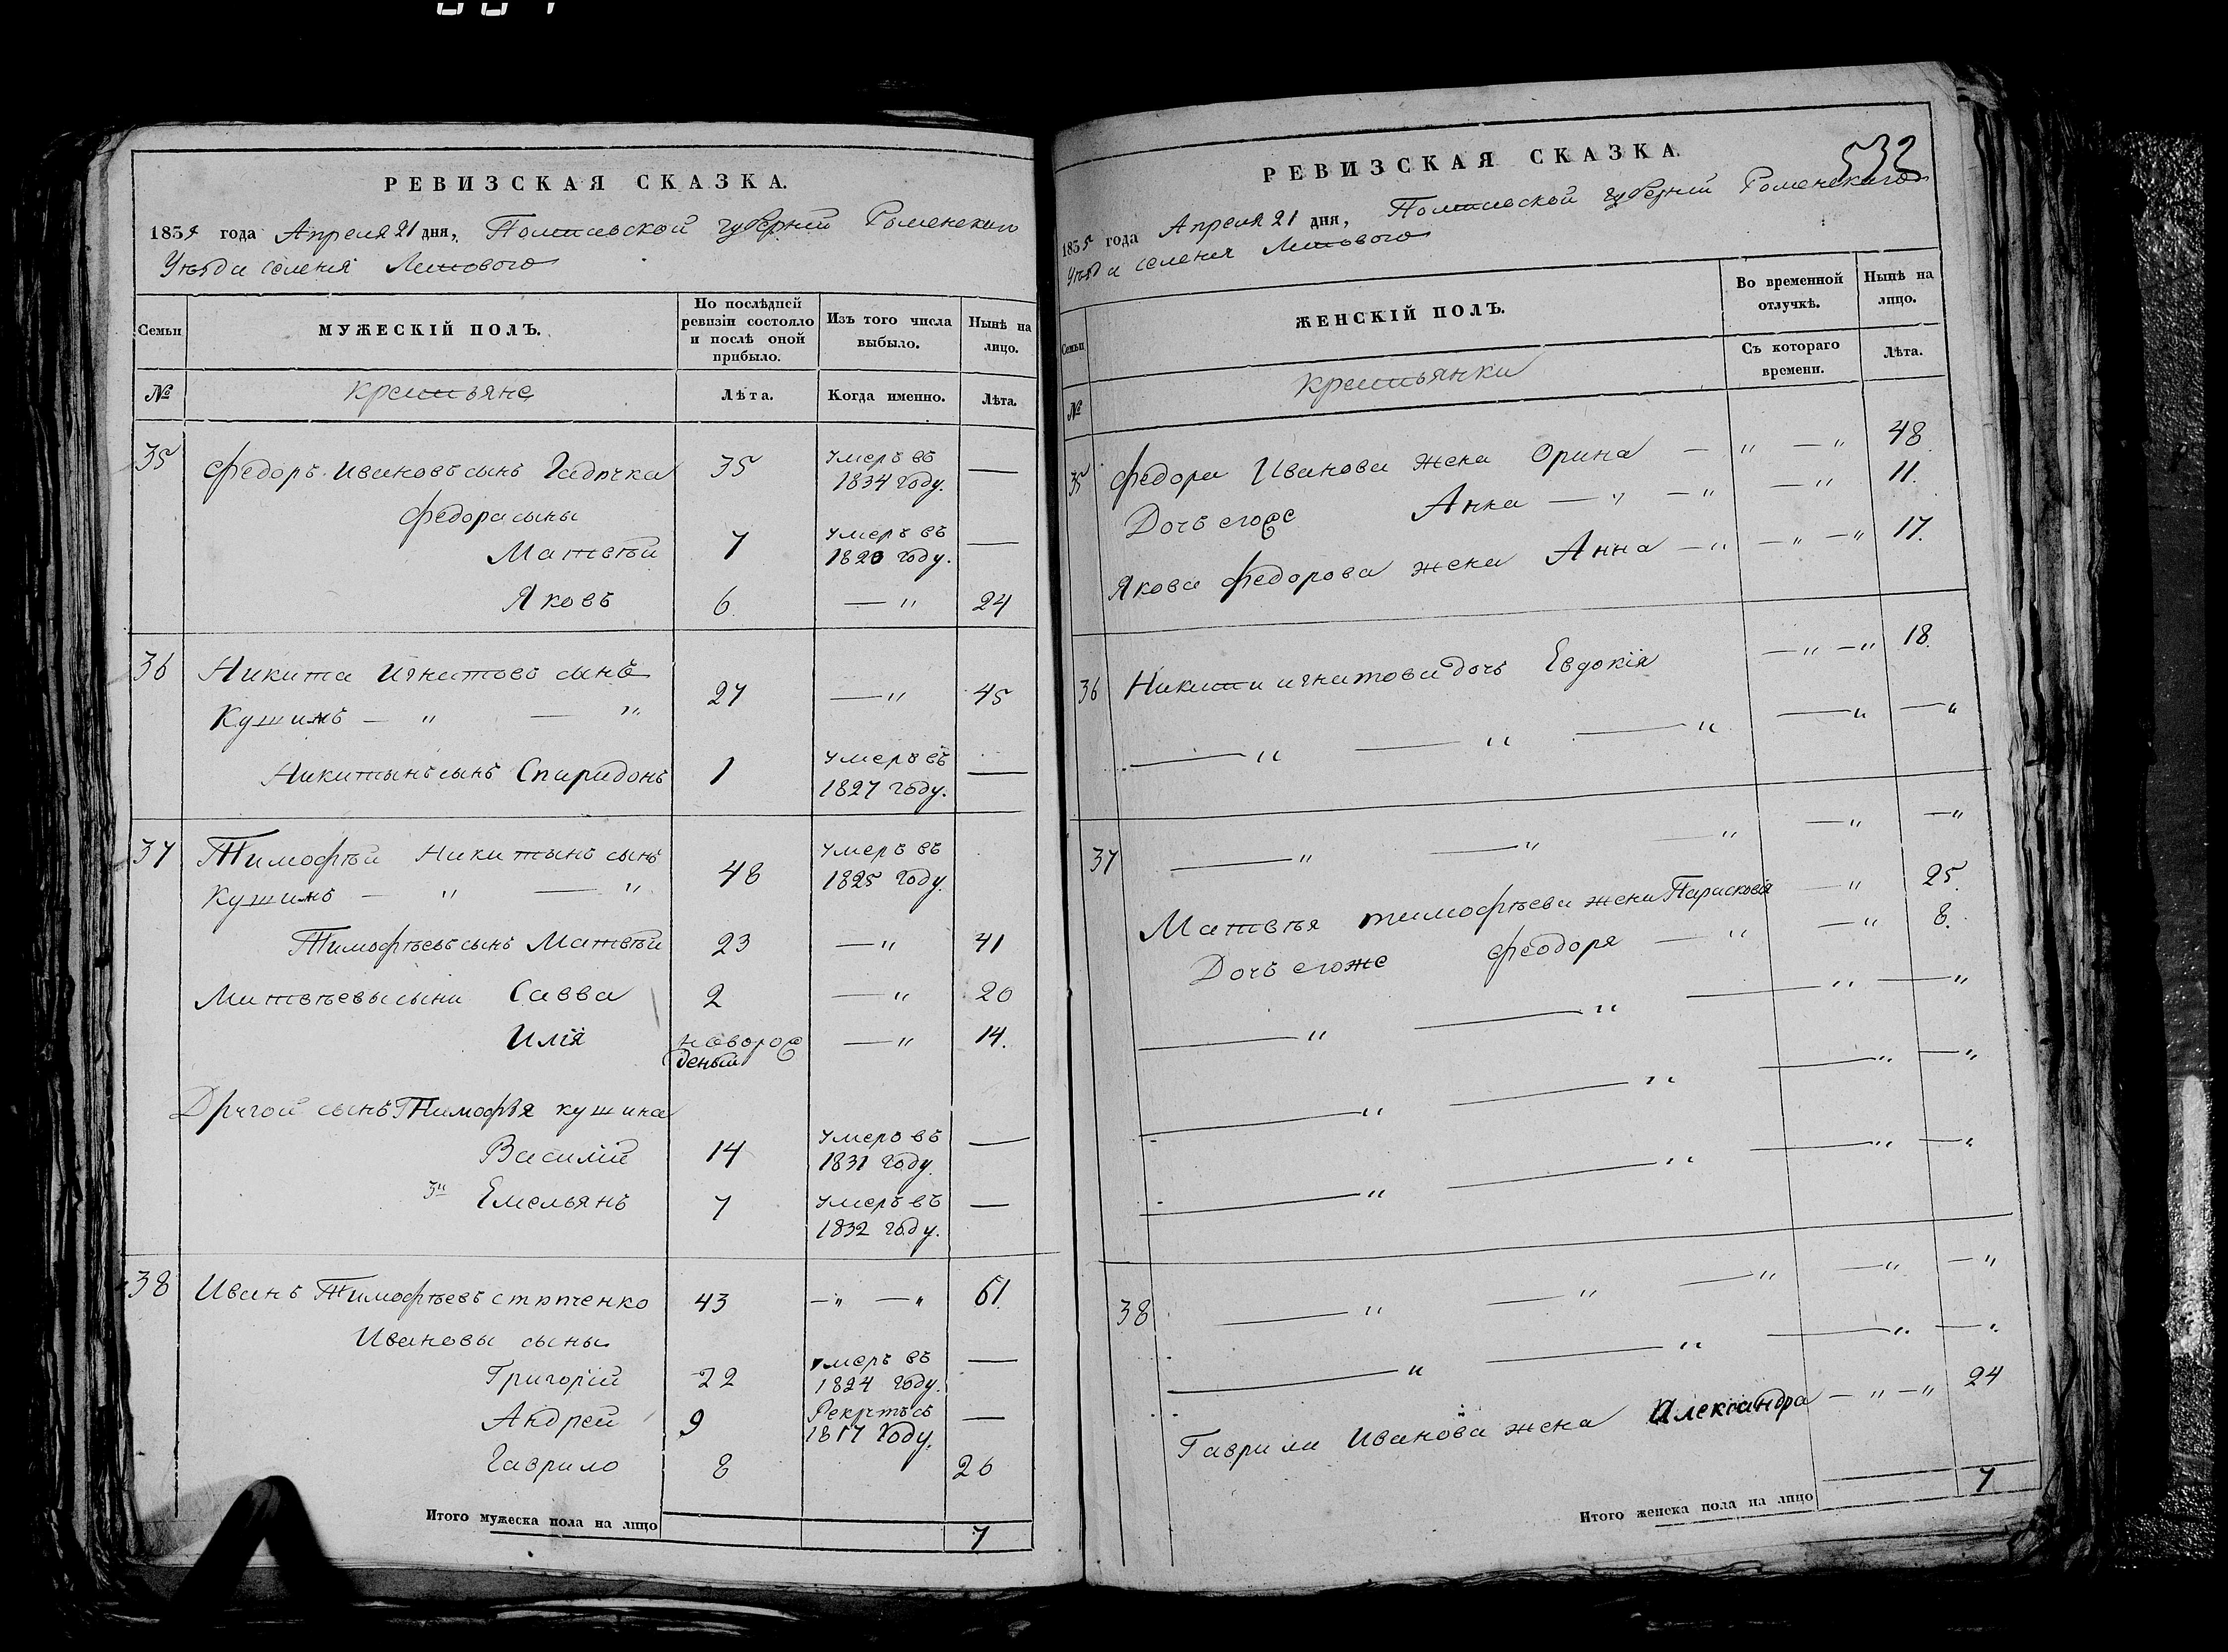 РЕВИЗСКАЯ СКАЗКА.
1835 года Апреля 21 дня, Полтавской губернии Роменскаго
Уезда селения Липового
Семьи
МУЖЕСКІЙ ПОЛЪ.
По послѣдней ревизіи состояло и послѣ оной прибыло.
Изъ того числа выбыло.
Нынѣ на лицо.
№
крестьяне
Лѣта.
Когда именно.
Лѣта.
35 Федоръ Ивановъ сынъ Гадючка 35 умеръ въ 1834 году. —
Федора сыны
Матвѣй 7 умеръ въ 1820 году. —
Яковъ 6. — " 24
36 Никита Игнатовъ сынъ
Кушимъ — " — " 27 — " 45
Никитынъ сынъ Спиридонъ 1 умеръ въ 1827 году. —
37 Тимофѣй Никитынъ сынъ
Кушимъ — " — " 48 умеръ въ 1825 году.
Тимофѣевъ сынъ Матвѣй 23 — " 41
Матвѣевы сыны Савва 2 — " 20
Илія новорожденый — " 14.
Другой сынъ Тимофѣя кушина
Василій 14 умеръ въ 1831 году. —
3й Емельянъ 7 умеръ въ 1832 году. —
38 Иванъ Тимофѣевъ 43 — " — " 61.
Ивановы сыны
Григорій 22 умеръ въ 1824 году. —
Андрей 9 Рекрутъ съ 1817 году. —
Гаврило 8 26
Итого мужеска пола на лицо 7
532
РЕВИЗСКАЯ СКАЗКА.
1835 года Апреля 21 дня, Полтавской губерніи Роменскаго
Уезда селения Липового
Семьи
ЖЕНСКІЙ ПОЛЪ.
Во временной отлучкѣ.
Нынѣ на лицо.
№
крестьянки
Съ котораго времени.
Лѣта.
35 Федора Иванова жена Орина — " — " 48
Дочь егоже Анна — " — " — " 11.
Якова Федорова жена Анна — " — " — " 17.
36 Никиты игнатова дочь Евдокія — " — " 18.
— " — " — " — " — "
37 — " — " — " — " — "
Матвѣя тимофѣева жена Парасковія — " 25.
Дочь егоже Феодора — " — " 8.
— " — " — " — "
— " — " — " — "
— " — " — " — "
38 — " — " — " — " — "
— " — " — " — "
Гаврила Иванова жена Александра — " — " 24
Итого женска пола на лицо 7